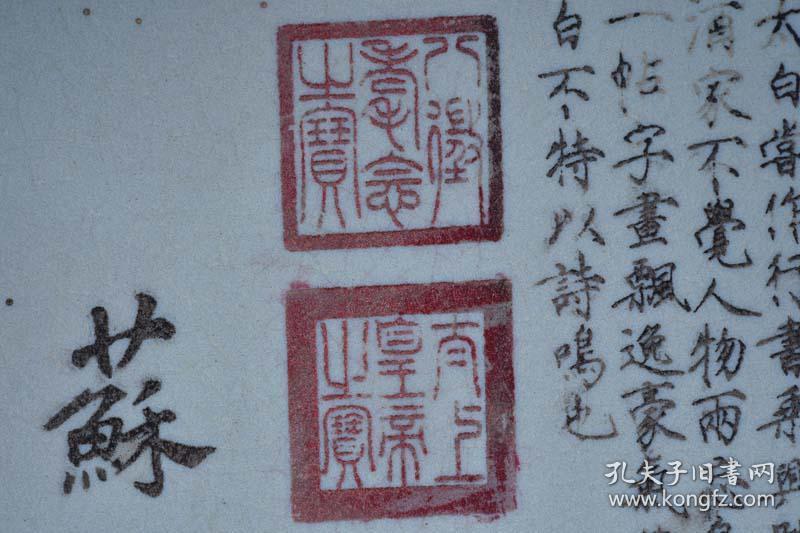 太白嘗作行書乘興
酒家不覺人物兩
一帖字畫飄逸豪
白不特以詩鳴也
八徵耄念之寶
太上皇帝之寶
蘇
孔夫子旧书网
www.kongfz.com